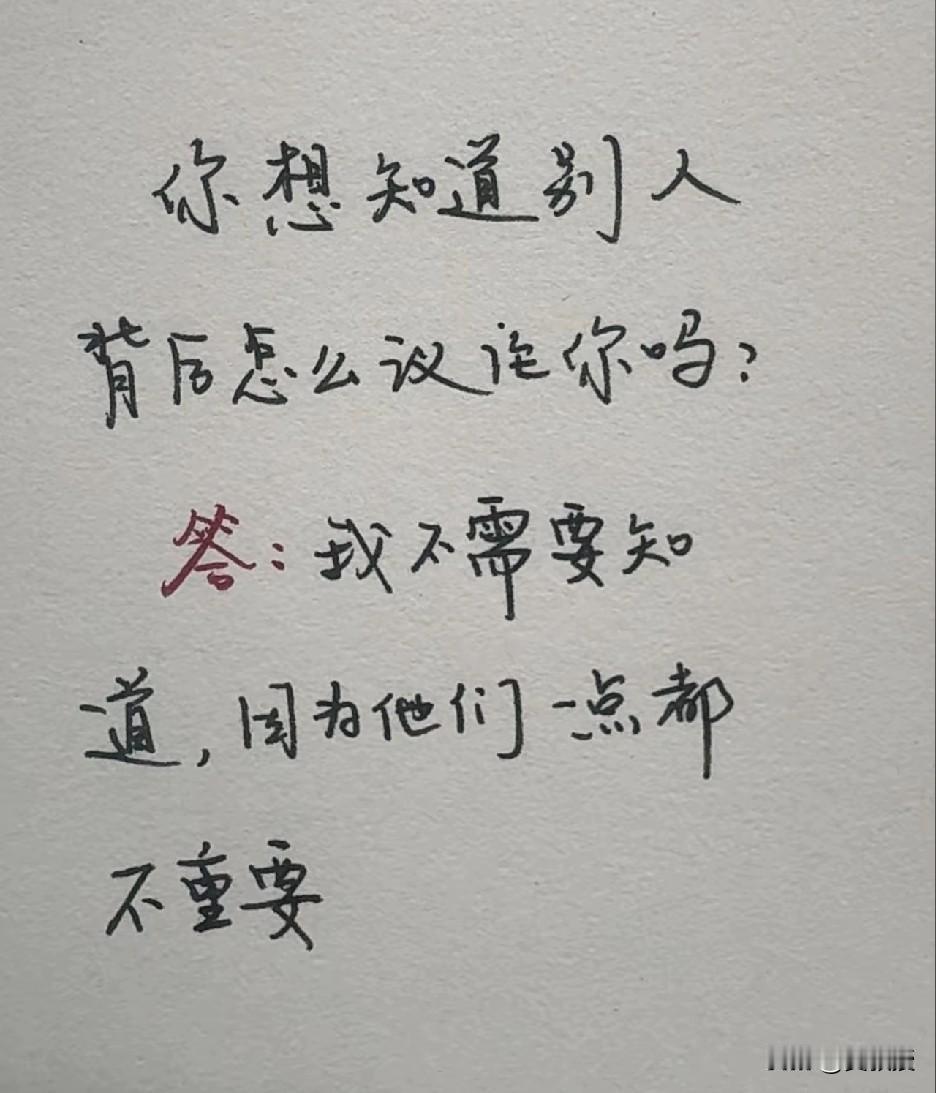 你想知道别人
背后怎么议论你吗?
答:我不需要知
道,因为他们一点都
不重要